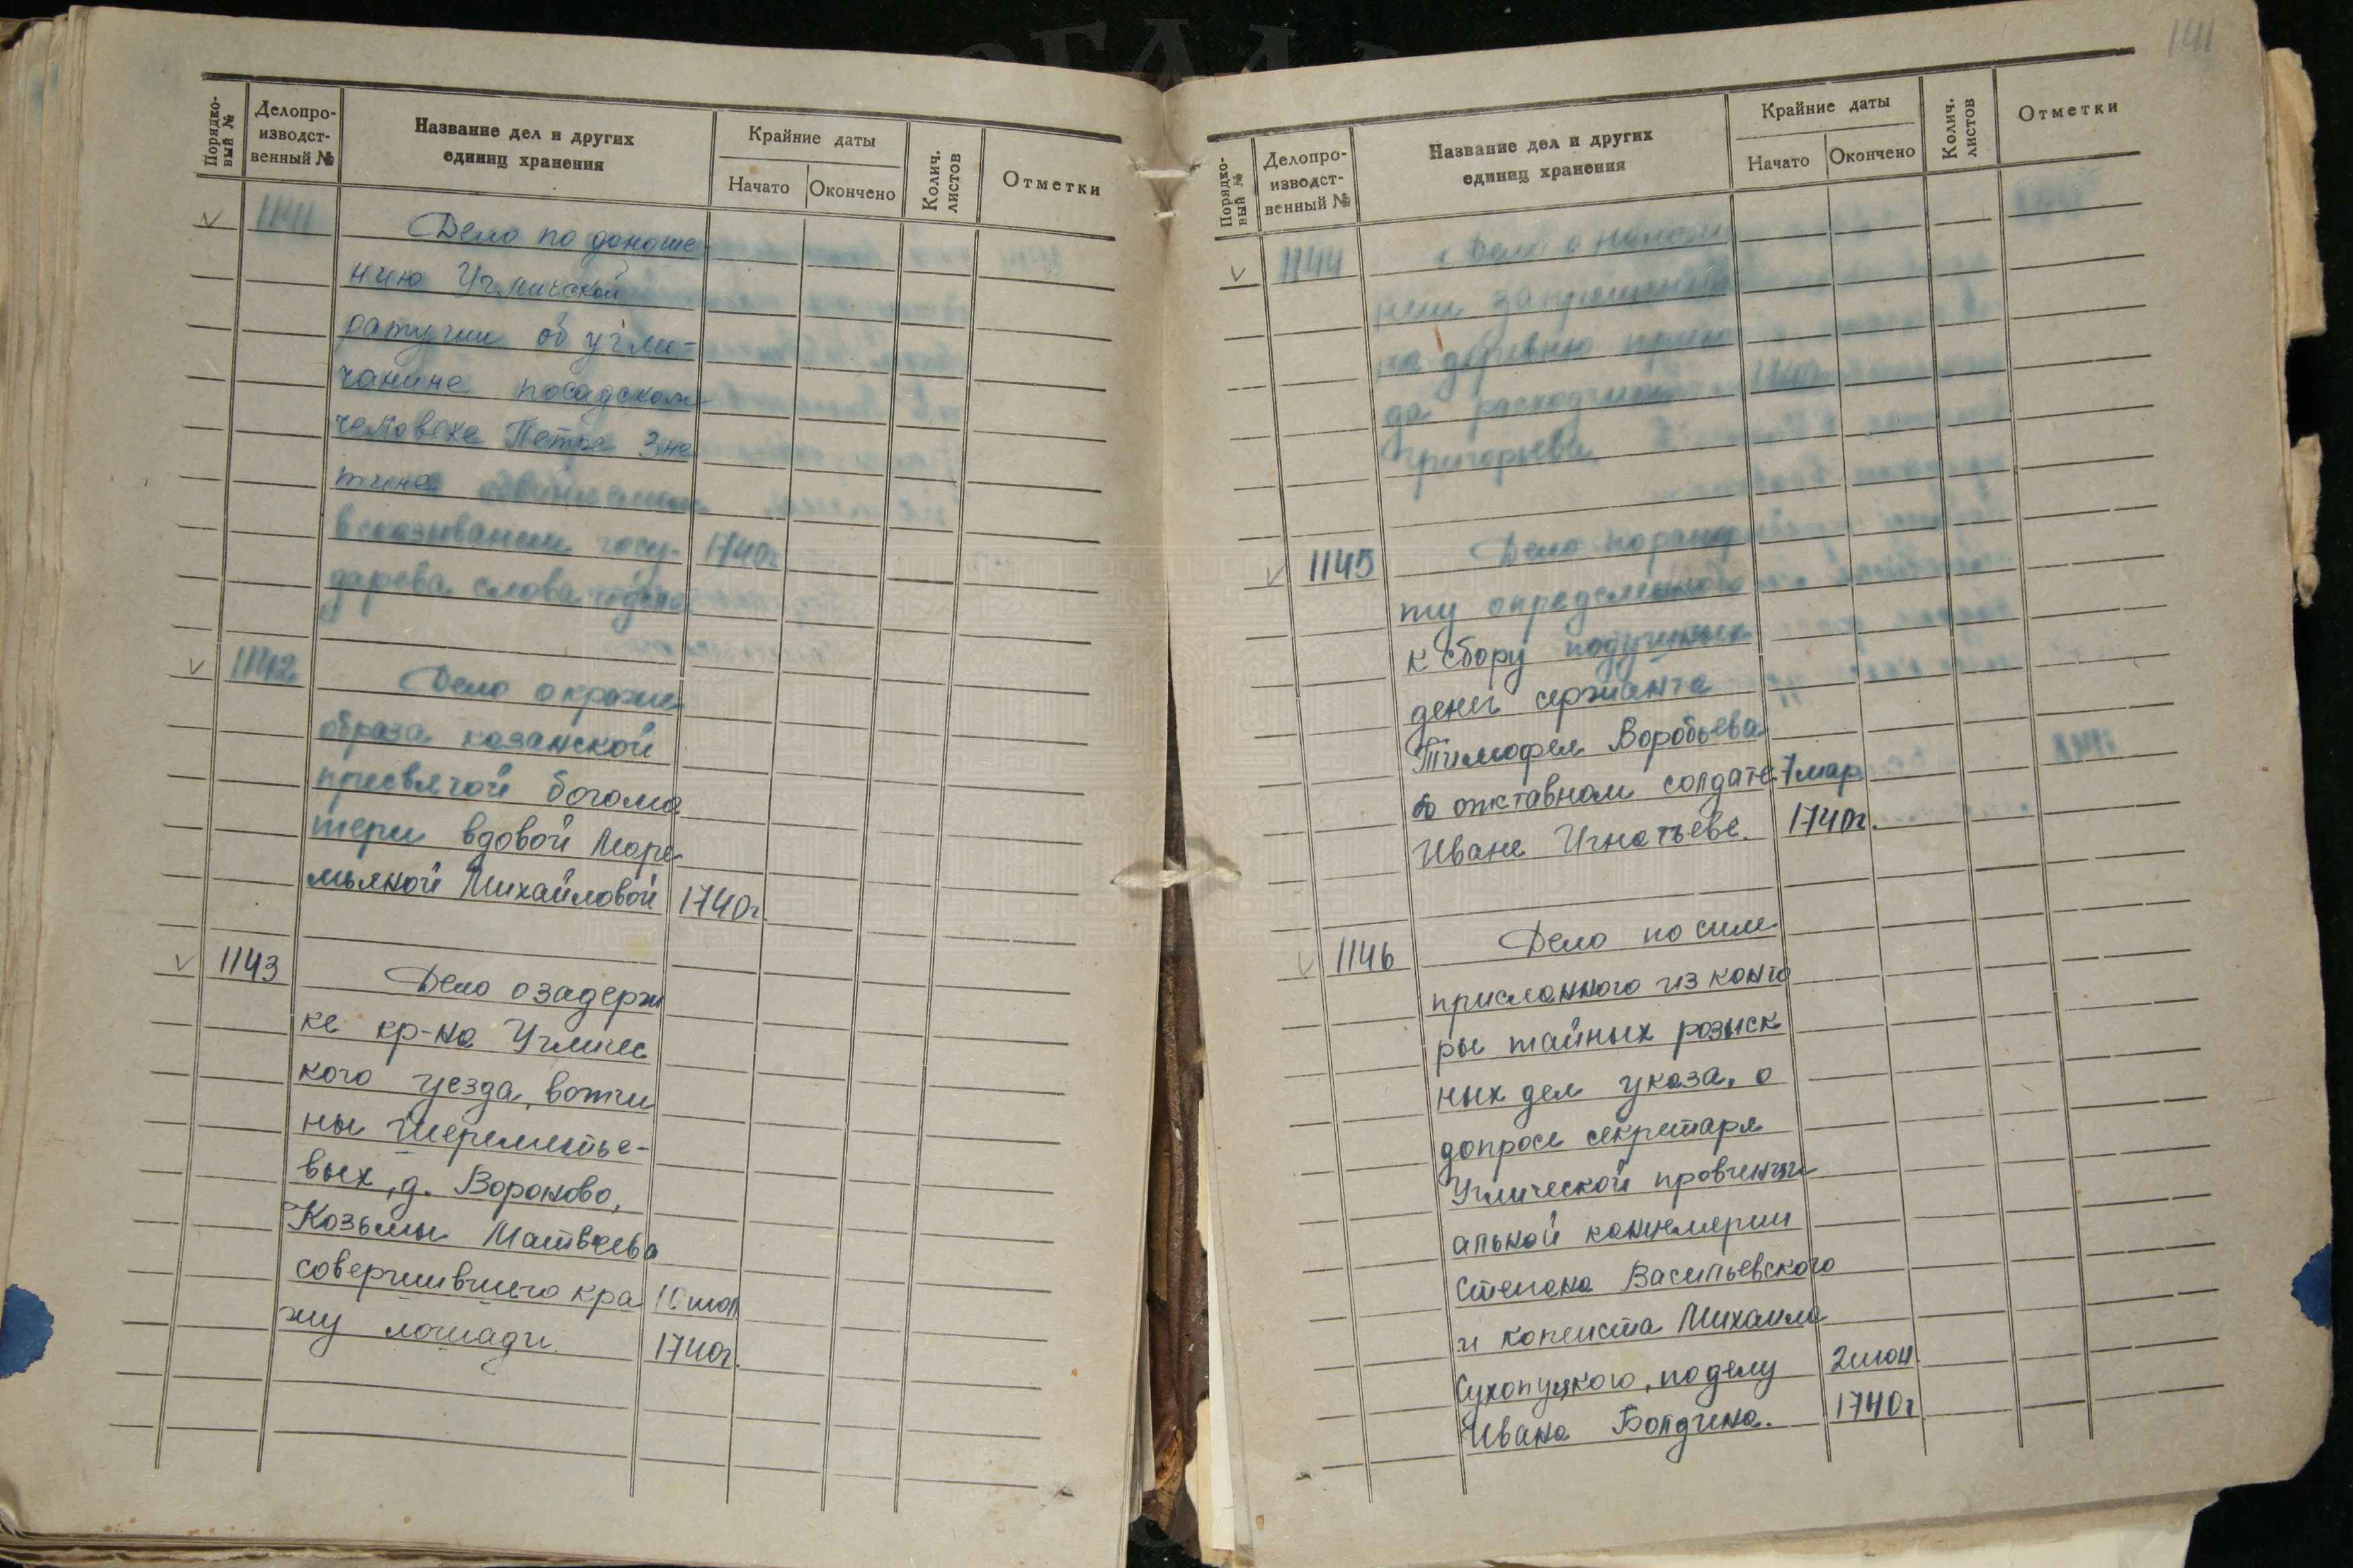 Порядко-
вый №
Делопро-
изводст-
венный №
Название дел и других
единиц хранения
Крайние даты
Начато
Окончено
Колич.
листов
Отметки
1141
Дело по доноше
нию Угличской
ратуши об угли-
чанине посадском
человеке Петре Зна
тине обвиняемом
в сказывании госу- 1740г.
дарева слова и дела
1142
Дело о краже
образа казанской
пресвятой богома
тери вдовой Маре
мьяной Михайловой 1740г.
1143
Дело о задерж
ке кр-на Угличес
кого уезда, вотчи
ны Шереметье-
вых, д. Вороново,
Козьмы Матвеева
совершившего кра
жу лошади. 1740г.
141
Порядко-
вый №
Делопро-
изводст-
венный №
Название дел и других
единиц хранения
Крайние даты
Начато
Окончено
Колич.
листов
Отметки
1144
Дело о наложе
нии запрещения
на деревню прихо
да расходчика 1740г.
Григорьева
1145
Дело по рапор
ту определенного
к сбору подушных
денег сержанта
Тимофея Воробьева
о отставном солдате 7 мар.
Иване Игнатьеве. 1740г.
1146
Дело по силе
присланного из конто
ры тайных розыск
ных дел указа, о
допросе секретаря
Угличской провинци
альной канцелярии
Степана Васильевского
и копеиста Михаила
Сухопуцкого, по делу 2 июн.
Ивана Болдина. 1740г